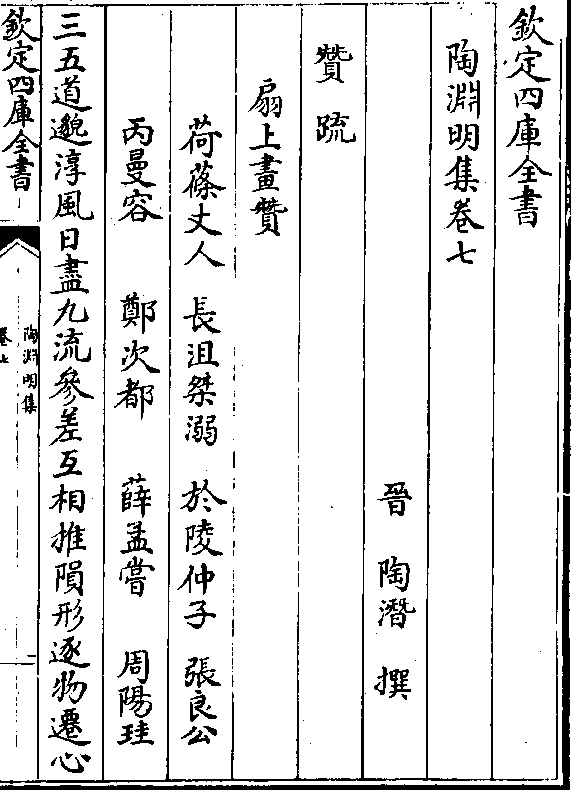 欽定四庫全書
陶淵明集卷七
晉 陶潛 撰
贊疏
扇上畫贊
荷蓧丈人 長沮桀溺 於陵仲子 張良公
丙曼容 鄭次都 薛孟嘗 周陽珪
三五道邈淳風日盡九流參差互相推隕形逐物遷心
欽定四庫全書
陶淵明集
卷七
一